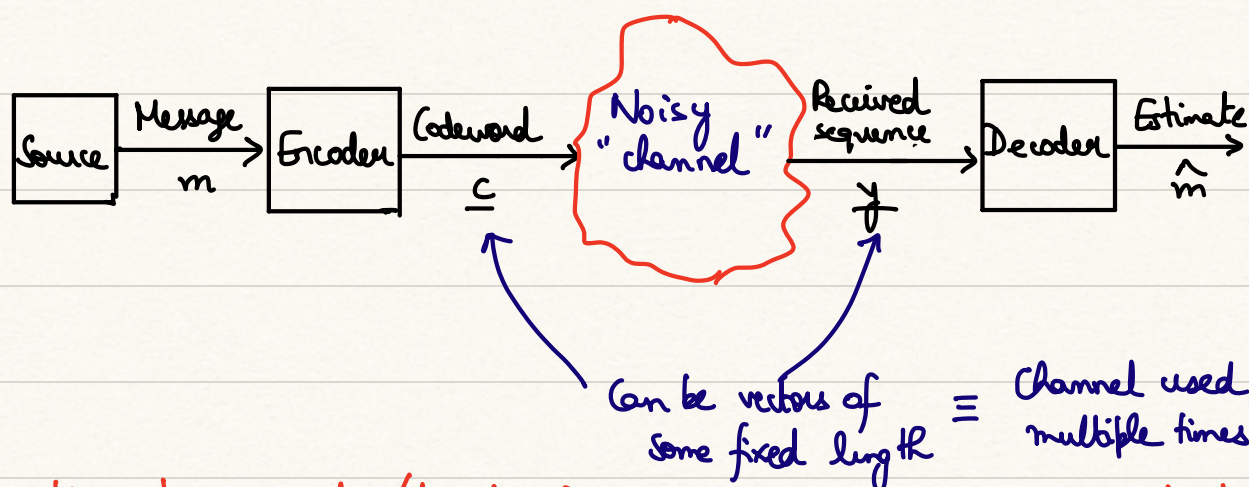 Source
Message
m
Encoder
Codeword
c
Noisy
"channel"
Received
sequence
y
Decoder
Estimate
m̂
Can be vectors of
some fixed length
≡
Channel used
multiple times